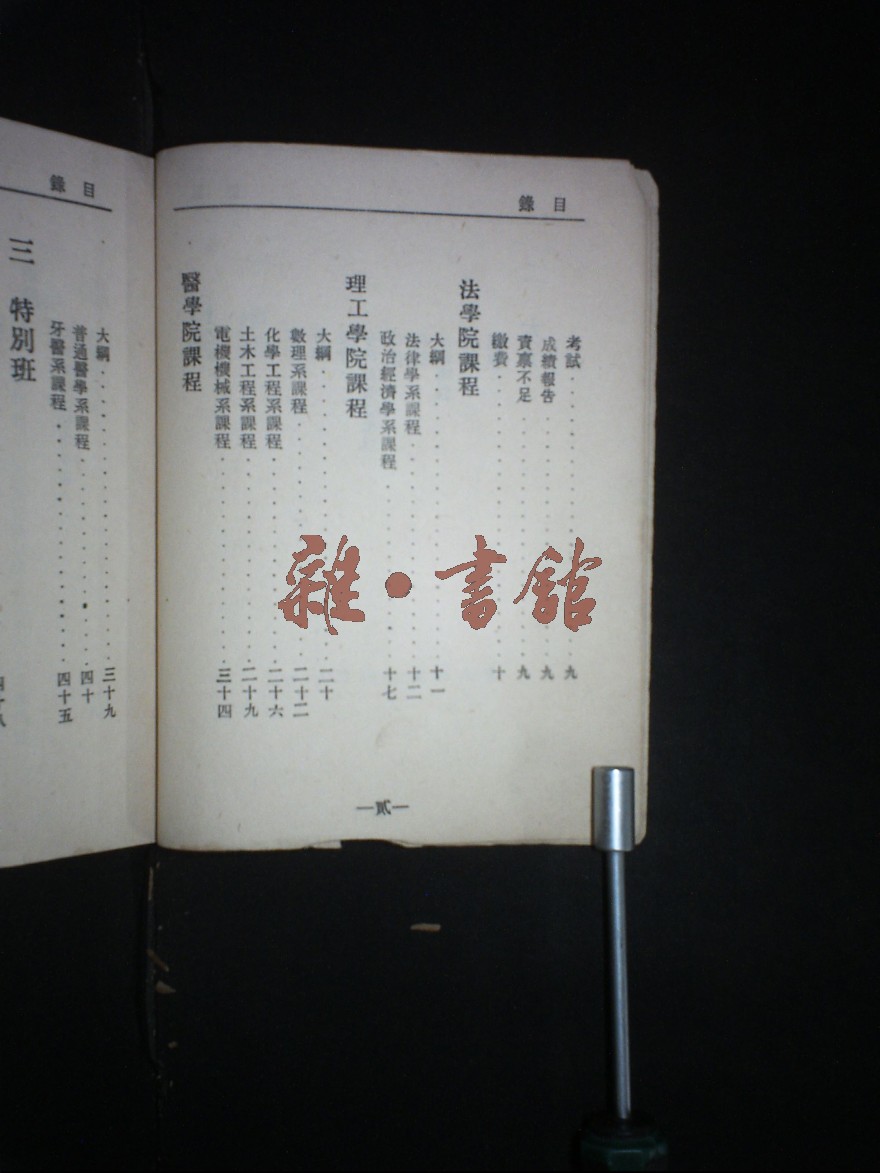 錄目
考試 九
成績報告 九
資稟不足 九
繳費 十
法學院課程
大綱 十一
法律學系課程 十二
政治經濟學系課程 十七
理工學院課程
大綱 二十
數理系課程 二十二
化學工程系課程 二十六
土木工程系課程 二十九
電機機械系課程 三十四
醫學院課程
—貳—
錄目
大綱 三十九
普通醫學系課程 四十
牙醫系課程 四十五
三 特別班
雜·書館